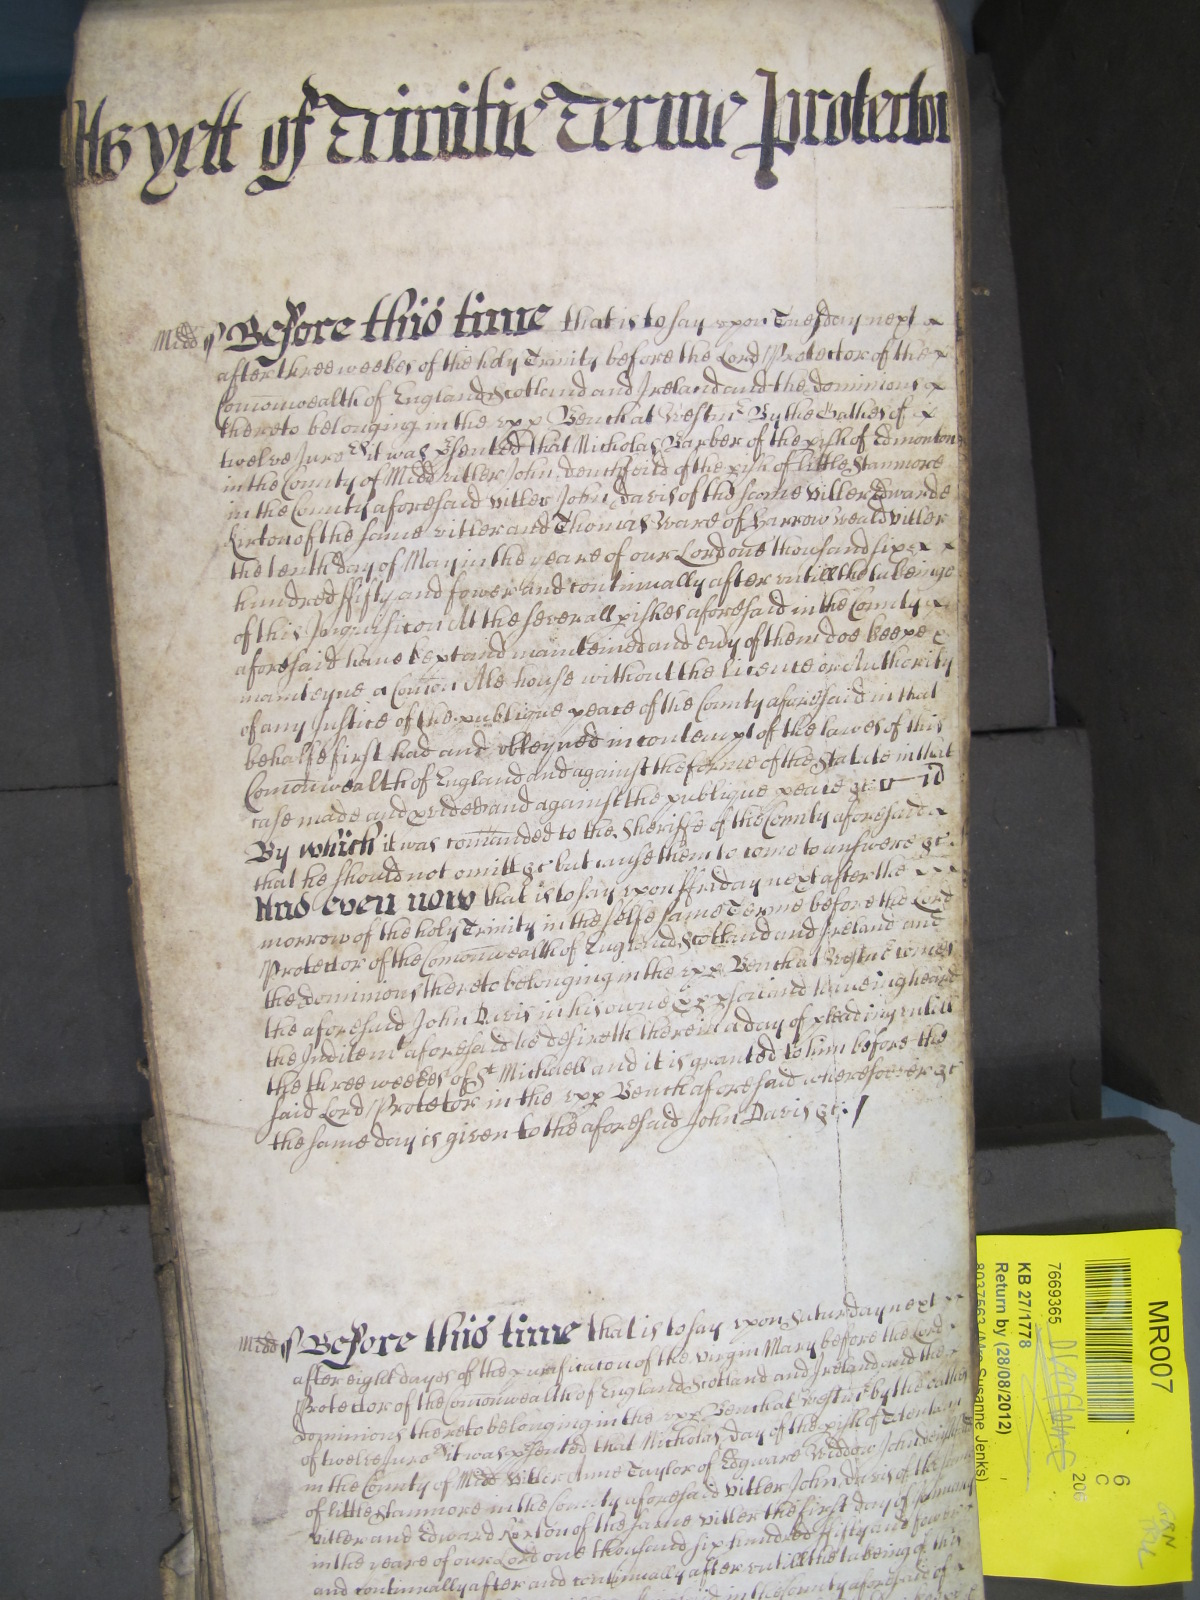 As yett of Trinitie Terme Protector
Midd ss Before this time that is to say upon Tuesday next x
after three weekes of the holy Trinity before the Lord Protector of the x
Comonwealth of England Scotland and Ireland and the dominions x
thereto belonging in the upp Bench at Westmr By the Oathes of x
twelve Juro it was psented that Nicholas Barber of the pish of Edmonton
in the County of Midd vitler John of the pish of little Stanmore
in the County aforesaid vitler John Davis of the same vitler Edwarde
Kirton of the same vitler and Thomas Ware of Harrow Weald vitler
the tenth day of May in the yeare of our Lord one thousand six x x
hundred fifty and fower and continually after untill the takeinge
of this Inquisicon At the severall pishes aforesaid in the County x
aforesaid have kept and mainteined and evy of them doe keepe &
mainteyne a Comon Ale house without the licence or Authority
of any Justice of the publique peace of the County aforesaid in that
behalfe first had and obteyned in contempt of the lawes of this
Comonwealth of England and against the forme of the Statute in that
case made and pvided and against the publique peace &c
By which it was comanded to the Sheriffe of the County aforesaid x
that he should not omitt &c but cause them to come to answere &c
And even now that is to say upon ffriday next after the x x
morrow of the holy Trinity in the selfe same Terme before the Lord
Protector of the Comonwealth of England Scotland and Ireland and
the dominions thereto belonging in the upp Bench at Westmr comes
the aforesaid John Davis in his owne pson and haveing heard
the Inditemt aforesaid he desireth therein a day of pleading untill
the three weekes of St Michaell and it is granted to him before the
said Lord Protector in the upp Bench aforesaid wheresoever &c
the same day is given to the aforesaid John Davis &c /
Midd ss Before this time that is to say upon Saturday next x x
after eight days of the purificacon of the virgin Mary before the Lord x
Protector of the Comonwealth of England Scotland and Ireland and the x
dominions thereto belonging in the upp Bench at Westmr by the oathes
of twelve Juro it was psented that Nicholas Day of the pish of
in the County of Midd vitler Anne Taylor of Edgware Widdow John
of little Stanmore in the County aforesaid vitler John Davis of the same
vitler and Edward Kirton of the same vitler the first day of January
in the yeare of our Lord one thousand six hundred fifty and fower
and continually after and continually after untill the takeing of this
in the County aforesaid
MR007
7669365
KB 27/1778
Return by (28/08/2012)
8037563 (Mrs Susanne Jenks)
6
C
206